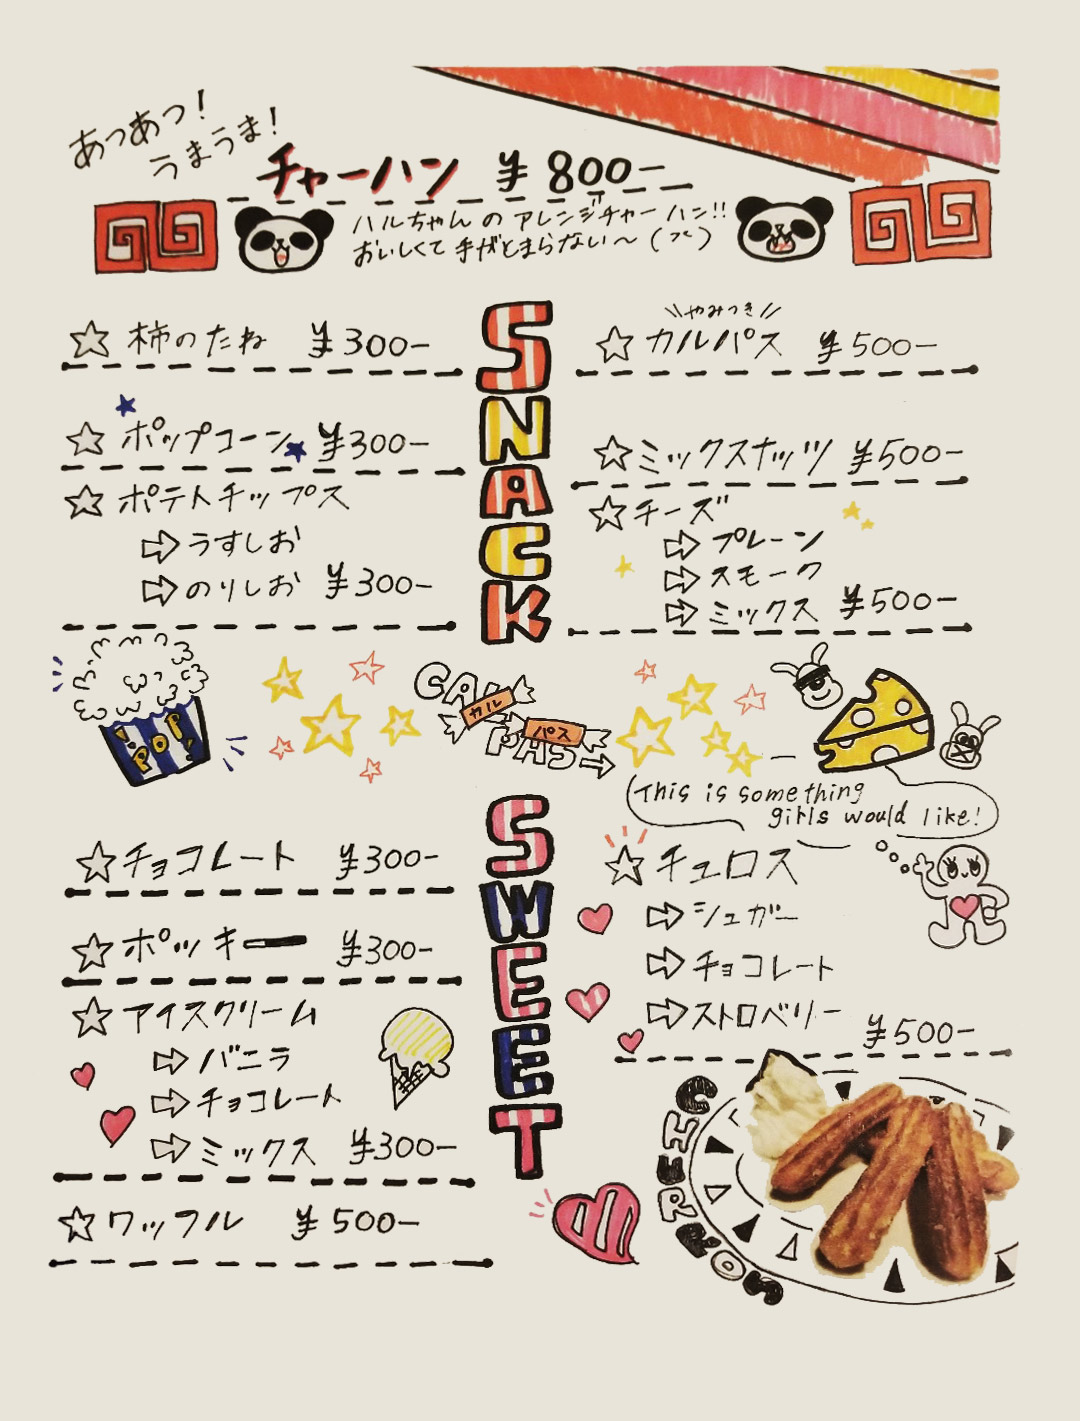 あつあつ!
うまうま!
チャーハン ¥800-
ハルちゃんのアレンジチャーハン!!
おいしくて手がとまらない〜
SNACK
☆柿のたね ¥300-
☆ポップコーン ¥300-
☆ポテトチップス
⇨うすしお
⇨のりしお ¥300-
\\やみつき//
☆カルパス ¥500-
☆ミックスナッツ ¥500-
☆チーズ
⇨プレーン
⇨スモーク
⇨ミックス ¥500-
POP
CAL
カル
パス
PAS→
SWEET
☆チョコレート ¥300-
☆ポッキー ¥300-
☆アイスクリーム
⇨バニラ
⇨チョコレート
⇨ミックス ¥300-
☆ワッフル ¥500-
This is something
girls would like!
☆チュロス
⇨シュガー
⇨チョコレート
⇨ストロベリー
¥500-